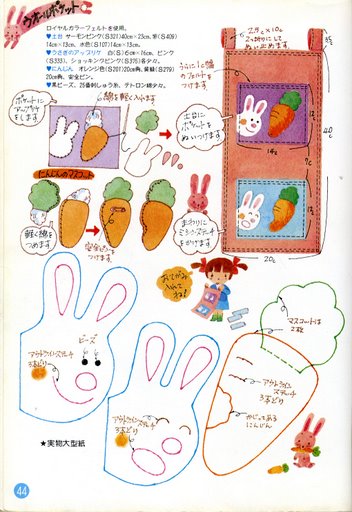 ウォールポケット
ロイヤルカラーフェルトを使用。
♥土台 サーモンピンク(S321)40cm×23cm、紫(S409)
14cm×13cm、水色(S107)14cm×13cm。
♥うさぎのアップリケ 白(S)6cm×16cm、ピンク
(S333)、ショッキングピンク(S375)各少々。
♥にんじん オレンジ色(S201)20cm角、黄緑(S279)
20cm角、安全ピン。
♥黒ビーズ、25番刺しゅう糸、テトロン綿少々。
ポケットに
アップリケ
をします
綿を軽く入れます
2つ折りにして
ぬい止めます
うらに1cm幅
のフェルトを
つけます
土台に
ポケットを
ぬいつけます
まわりに
ミシンステッチ
をかけます
14cm
20cm
40cm
にんじんのマスコット
軽く綿を
つめます
安全ピンを
つけます
おてがみ
入れてネ!
マスコットは
2枚
ビーズ
アウトラインステッチ
3本どり
アウトラインステッチ
3本どり
アウトライン
ステッチ
3本どり
かじってある
にんじん
★実物大型紙
44